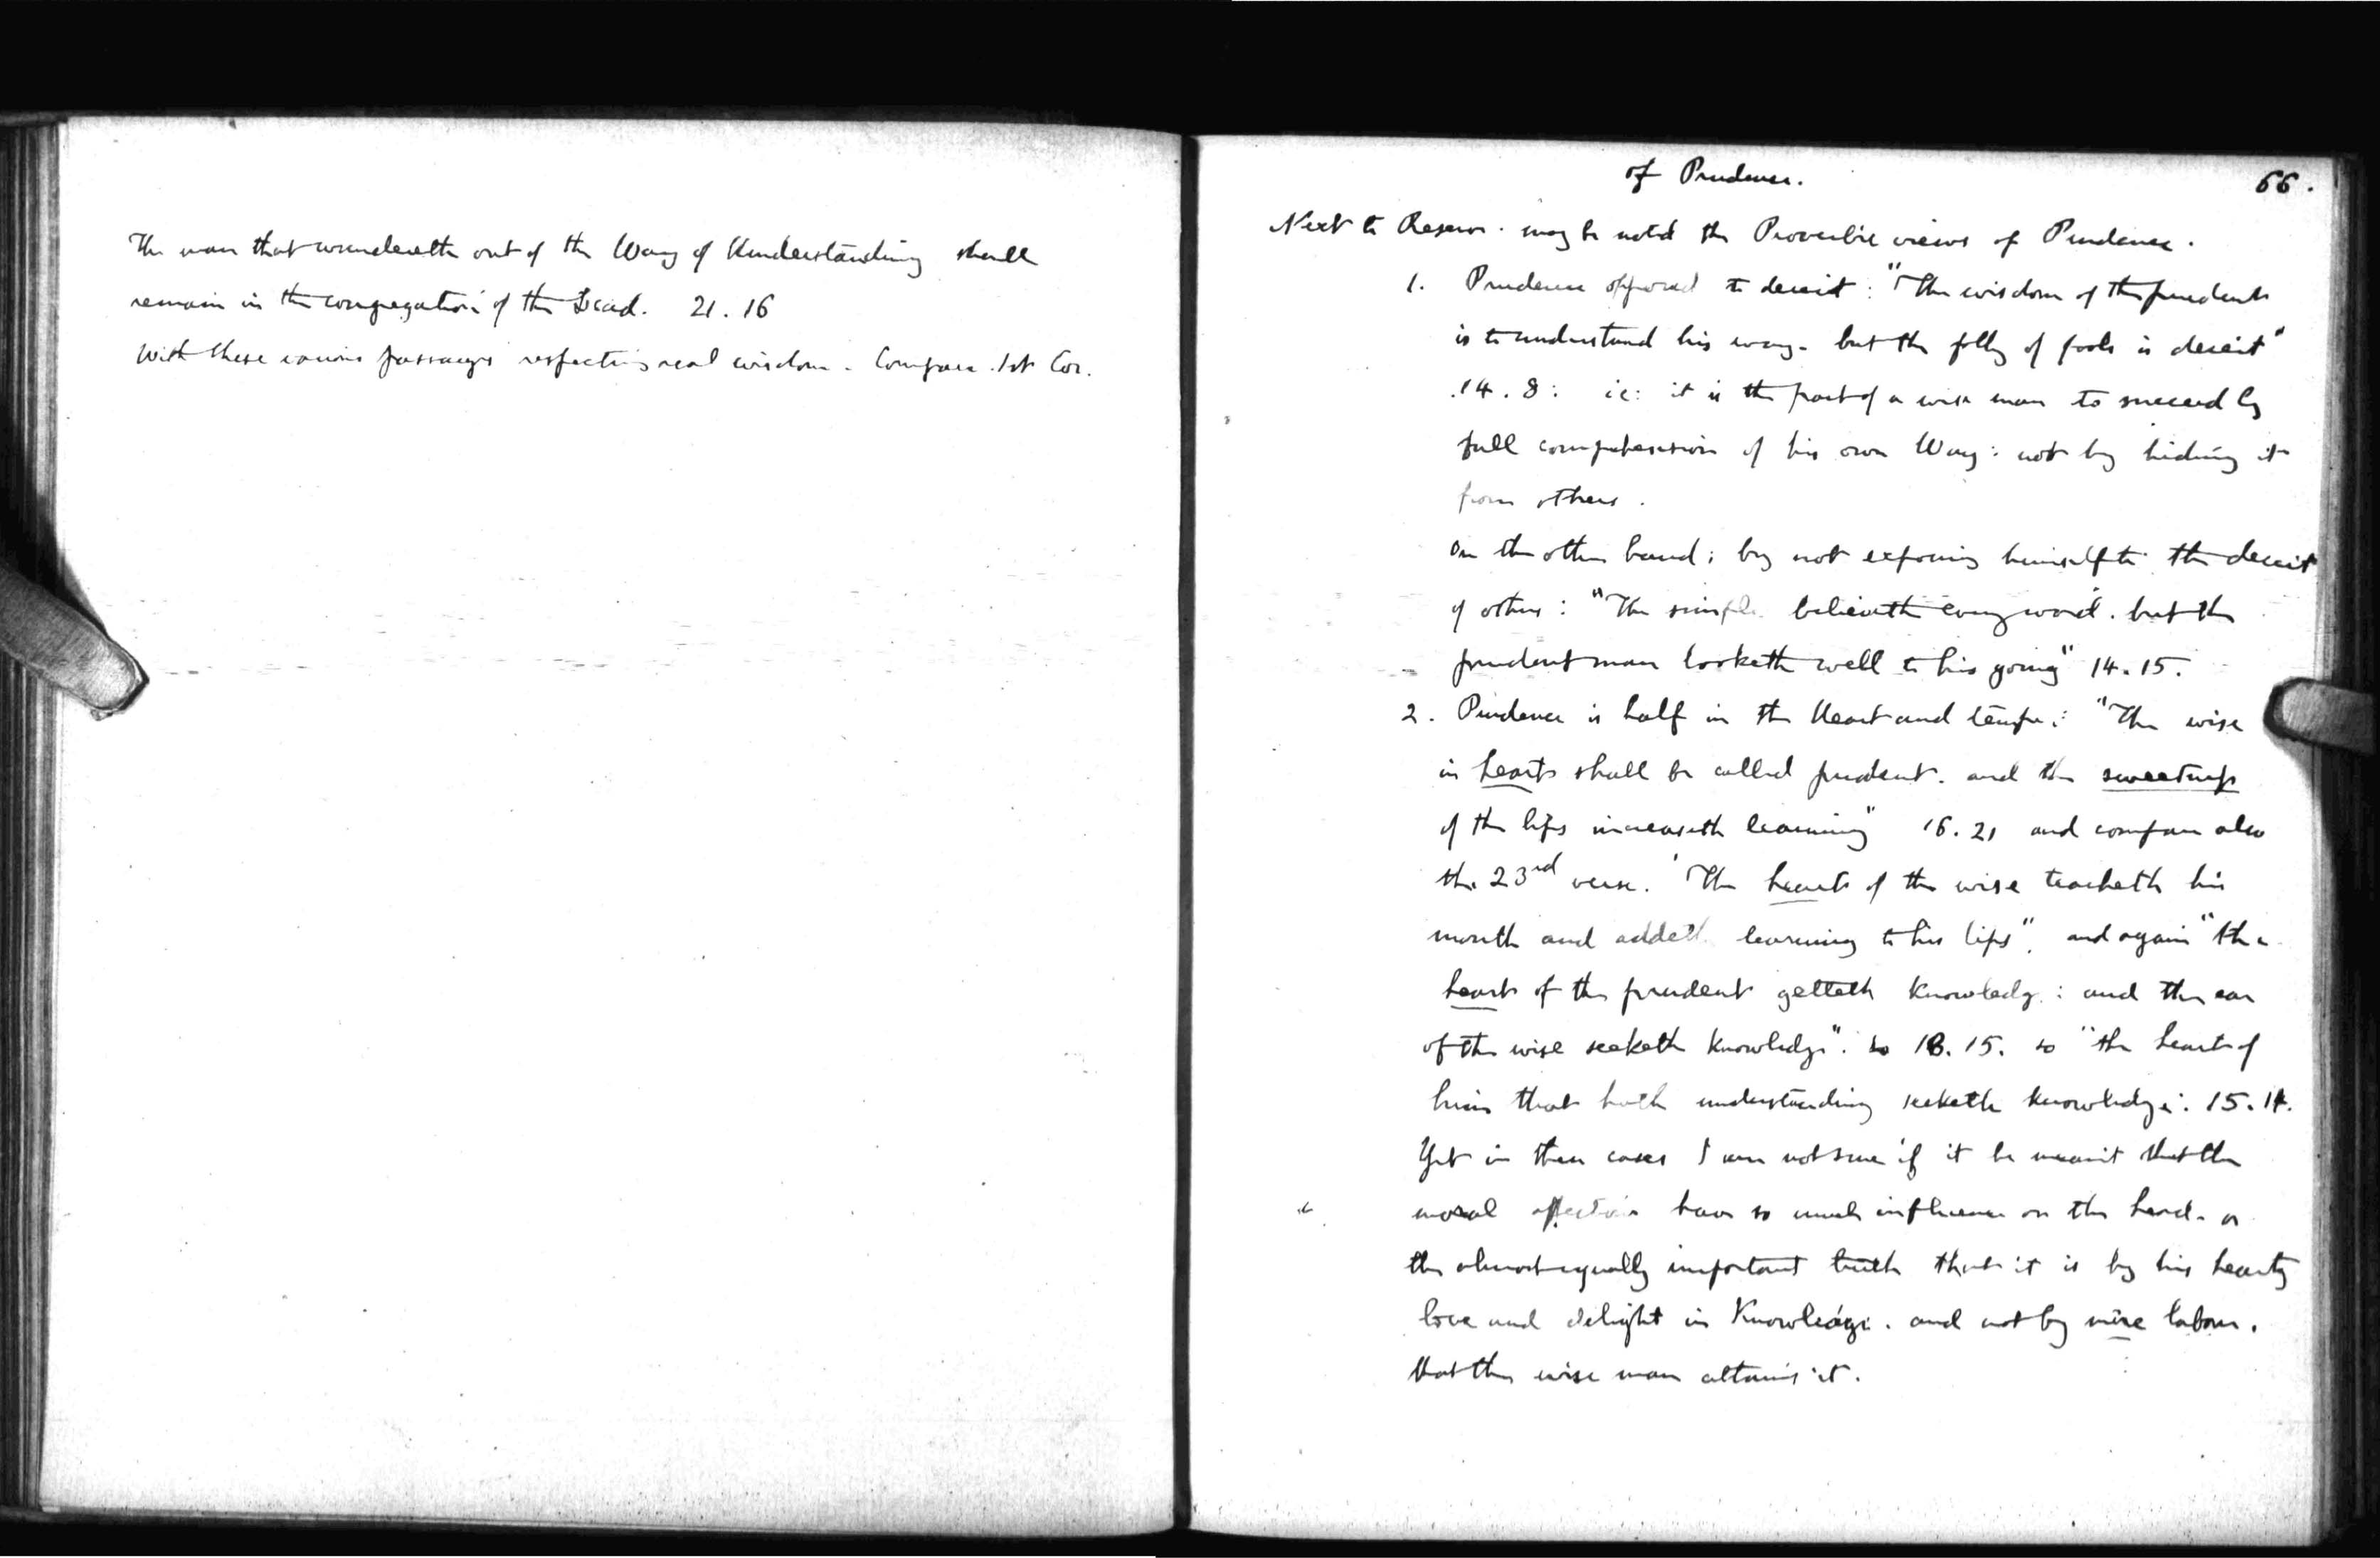 The man that wandereth out of the Way of Understanding shall
remain in the congregation of the Dead. 21. 16
With these various passages respecting real wisdom. Compare 1st Cor.
of Prudence.
66.
Next to Reserve. may be noted the Proverbic views of Prudence.
1. Prudence opposed to deceit: "The wisdom of the prudent
is to understand his way. but the folly of fools is deceit"
.14. 8: ie: it is the part of a wise man to succeed by
full comprehension of his own Way: not by hiding it
from others.
On the other hand; by not exposing himself to the deceit
of others: "The simple believeth every word. but the
prudent man looketh well to his going" 14. 15.
2. Prudence is half in the Heart and temper: "The wise
in heart shall be called prudent. and the sweetness
of the lips increaseth learning" 16. 21 and compare also
the 23rd verse. 'The heart of the wise teacheth his
mouth and addeth learning to his lips", and again "the
heart of the prudent getteth knowledge: and the ear
of the wise seeketh knowledge". 18. 15. so "the heart of
him that hath understanding seeketh knowledge: 15. 14.
Yet in these cases I am not sure if it be meant that the
moral affections have so much influence on the head. or
the almost equally important truth that it is by his hearty
love and delight in Knowledge. and not by mere labour.
that the wise man attains it.